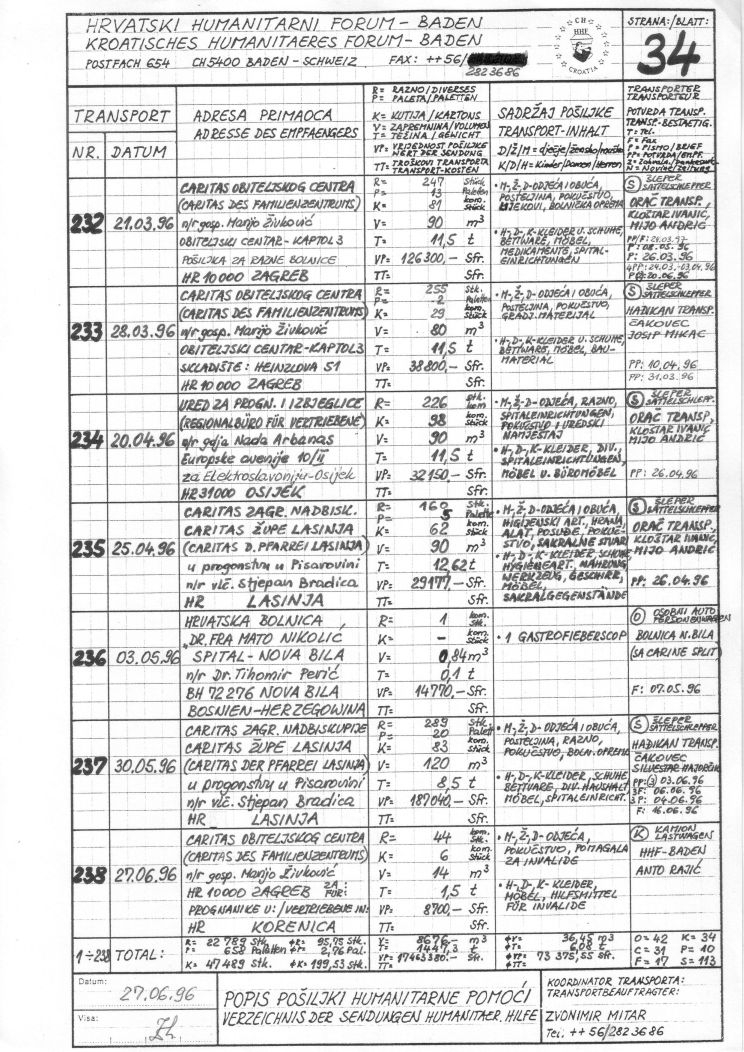 HRVATSKI HUMANITARNI FORUM – BADEN
KROATISCHES HUMANITAERES FORUM – BADEN
POSTFACH 654 CH 5400 BADEN – SCHWEIZ FAX: ++ 56/
282 36 86
CH
HHF
CROATIA
STRANA:/BLATT:
34
TRANSPORT
NR. DATUM
ADRESA PRIMAOCA
ADRESSE DES EMPFAENGERS
R= RAZNO/DIVERSES
P= PALETA/PALETTEN
K= KUTIJA/KARTONS
V= ZAPREMNINA/VOLUMEN
T= TEŽINA/GEWICHT
VP= VRIJEDNOST POŠILJKE
WERT DER SENDUNG
TT= TROŠKOVI TRANSPORTA
TRANSPORT-KOSTEN
SADRŽAJ POŠILJKE
TRANSPORT-INHALT
D/Ž/M = dječje/ženska/muška
K/D/H = Kinder/Damen/Herren
TRANSPORTER
TRANSPORTEUR
POTVRDA TRANSP.
TRANSP.-BESTAETIG.
T= Tel.
F= Fax
P= PISMO/BRIEF
PP= POTVRDA/EMPF.
N= Novine/Zeitung
232 21.03.96
CARITAS OBITELJSKOG CENTRA
(CARITAS DES FAMILIENZENTRUMS)
n/r gosp. Marijo Živković
OBITELJSKI CENTAR – KAPTOL 3
POŠILJKA ZA RAZNE BOLNICE
HR 10000 ZAGREB
R= 247 Stück
P= 13 Paletten
K= 81 kom. Stück
V= 90 m³
T= 11,5 t
VP= 126300,– Sfr.
TT= Sfr.
• M,-Ž,-D-ODJEĆA I OBUĆA,
POSTELJINA, POKUĆSTVO,
LIJEKOVI, BOLNIČKA OPREMA
• H-, D-, K-KLEIDER U. SCHUHE,
BETTWARE, MÖBEL,
MEDIKAMENTE, SPITAL-
EINRICHTUNGEN
(S) ŠLEPER
SATTELSCHLEPPER
ORAČ TRANSP.,
KLOŠTAR IVANIĆ,
MIJO ANDRIĆ
P: 08.05.96
P: 26.03.96
4PP: 24.03.-03.04.96
20.06.96
233 28.03.96
CARITAS OBITELJSKOG CENTRA
(CARITAS DES FAMILIENZENTRUMS)
n/r gosp. Marijo Živković
OBITELJSKI CENTAR – KAPTOL 3
SKLADIŠTE: HEINZLOVA 51
HR 10000 ZAGREB
R= 255 Stk.
P= 2 Paletten
K= 29 kom. Stück
V= 80 m³
T= 11,5 t
VP= 38800,– Sfr.
TT= Sfr.
• M,-Ž,-D-ODJEĆA I OBUĆA,
POSTELJINA, POKUĆSTVO,
GRADJ. MATERIJAL
• H-, D-, K-KLEIDER U. SCHUHE,
BETTWARE, MÖBEL, BAU-
MATERIAL
(S) ŠLEPER
SATTELSCHLEPPER
HADIKAN TRANSP.
ČAKOVEC
JOSIP MIKAC
PP: 10.04.96
PP: 31.03.96
234 20.04.96
URED ZA PROGN. I IZBJEGLICE
(REGIONALBÜRO FÜR VERTRIEBENE)
n/r gdja Nada Arbanas
Europske avenije 10/II
za Elektroslavoniju-Osijek
HR 31000 OSIJEK
R= 226 stk. kom
K= 98 kom. Stück
V= 90 m³
T= 11,5 t
VP= 32150,– Sfr.
TT= Sfr.
• M,-Ž,-D-ODJEĆA, RAZNO,
SPITALEINRICHTUNGEN,
POKUĆSTVO I UREDSKI
NAMJEŠTAJ
• H-, D-, K-KLEIDER, DIV.,
SPITALEINRICHTUNGEN,
MÖBEL U. BÜROMÖBEL
(S) ŠLEPER
SATTELSCHLEPP.
ORAČ TRANSP.,
KLOŠTAR IVANIĆ
MIJO ANDRIĆ
PP: 26.04.96
235 25.04.96
CARITAS ZAGR. NADBISK.
CARITAS ŽUPE LASINJA
(CARITAS D. PFARREI LASINJA)
u progonstvu u Pisarovini
n/r vlč. Stjepan Bradica
HR LASINJA
R= 160 Stk.
P= 5 Palette
K= 62 kom. Stück
V= 90 m³
T= 12,62 t
VP= 29177,– Sfr.
TT= Sfr.
• M,-Ž,-D-ODJEĆA I OBUĆA,
HIGIJENSKI ART., HRANA,
ALAT, POSUĐE, POKUĆ-
STVO, SAKRALNE STVARI
• H-, D-, K-KLEIDER, SCHUHE,
HYGIENEART. NAHRUNG,
WERKZEUG, GESCHIRR,
MÖBEL,
SAKRALGEGENSTÄNDE
(S) ŠLEPER
SATTELSCHLEPPER
ORAČ TRANSP.,
KLOŠTAR IVANIĆ,
MIJO ANDRIĆ
PP: 26.04.96
236 03.05.96
HRVATSKA BOLNICA
„DR. FRA MATO NIKOLIĆ“
SPITAL – NOVA BILA
n/r Dr. Tihomir Perić
BH 72276 NOVA BILA
BOSNIEN-HERZEGOWINA
R= 1 kom. Stk.
K= – kom. Stück
V= 0,84 m³
T= 0,1 t
VP= 14770,– Sfr.
TT= Sfr.
• 1 GASTROFIEBERSCOP
(O) OSOBNI AUTO
PERSONENWAGEN
BOLNICA N. BILA
(SA CARINE SPLIT)
F: 07.05.96
237 30.05.96
CARITAS ZAGR. NADBISKUPIJE
CARITAS ŽUPE LASINJA
(CARITAS DER PFARREI LASINJA)
u progonstvu u Pisarovini
n/r vlč. Stjepan Bradica
HR LASINJA
R= 289 Stk.
P= 20 Palett
K= 83 kom. Stück
V= 120 m³
T= 8,5 t
VP= 187040,– Sfr.
TT= Sfr.
• M,-Ž,-D-ODJEĆA I OBUĆA,
POSTELJINA, RAZNO,
POKUĆSTVO, BOLN. OPREMA
• H-, D-, K-KLEIDER, SCHUHE
BETTWARE, DIV. HAUSHALT
MÖBEL, SPITALEINRICHT.
(S) ŠLEPER
SATTELSCHLEPPER
HADIKAN TRANSP.
ČAKOVEC
PP: (3) 03.06.96
3F: 06.06.96
3P: 04.06.96
F: 16.06.96
238 27.06.96
CARITAS OBITELJSKOG CENTRA
(CARITAS DES FAMILIENZENTRUMS)
n/r gosp. Marijo Živković
HR 10000 ZAGREB ZA: FÜR:
PROGNANIKE U:/VERTRIEBENE IN:
HR KORENICA
R= 44 kom. Stk.
K= 6 kom. Stück
V= 14 m³
T= 1,5 t
VP= 8700,– Sfr.
TT= Sfr.
• M,-Ž,-D-ODJEĆA,
POKUĆSTVO, POMAGALA
ZA INVALIDE
• H-, D-, K-KLEIDER,
MÖBEL, HILFSMITTEL
FÜR INVALIDE
(K) KAMION
LASTWAGEN
HHF-BADEN
ANTO RAJIĆ
1÷238 TOTAL:
R= 22 789 Stk. ΦR= 95,75 Stk.
P= 658 Paletten ΦP= 2,76 Pal.
K= 47 489 Stk. ΦK= 199,53 Stk.
V= 8676,– m³
T= 1447,3 t
VP= 17463380,– Sfr.
TT=
ΦV= 36,45 m3
ΦT= 6,08 t
ΦVP= 73 375,55 Sfr.
ΦTT=
O=42 K=34
C=31 P=10
F=17 S=113
Datum:
27.06.96
Visa:
POPIS POŠILJKI HUMANITARNE POMOĆI
VERZEICHNIS DER SENDUNGEN HUMANITAER. HILFE
KOORDINATOR TRANSPORTA:
TRANSPORTBEAUFTRAGTER:
ZVONIMIR MITAR
Tel. ++ 56/282 36 86